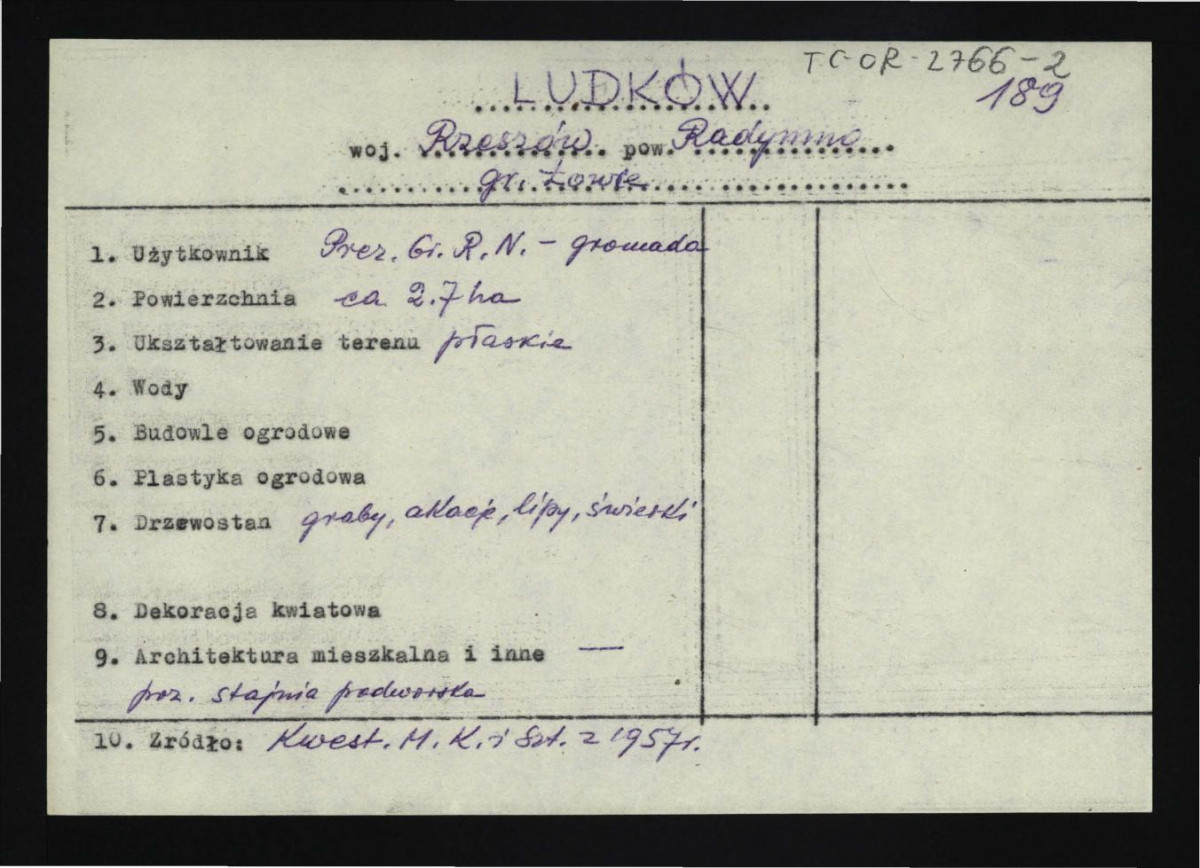 TC-OR-2766-2
189
LUDKÓW
woj. Rzeszów pow. Radymno
gr. Łowce
1. Użytkownik Prez. Gr. R. N. - gromada
2. Powierzchnia ca 2.7 ha
3. Ukształtowanie terenu płaskie
4. Wody
5. Budowle ogrodowe
6. Plastyka ogrodowa
7. Drzewostan graby, akacje, lipy, świerki
8. Dekoracja kwiatowa
9. Architektura mieszkalna i inne —
poz. stajnia podworska
10. Zródło: Kwest. M. K. i Szt. z 1957r.